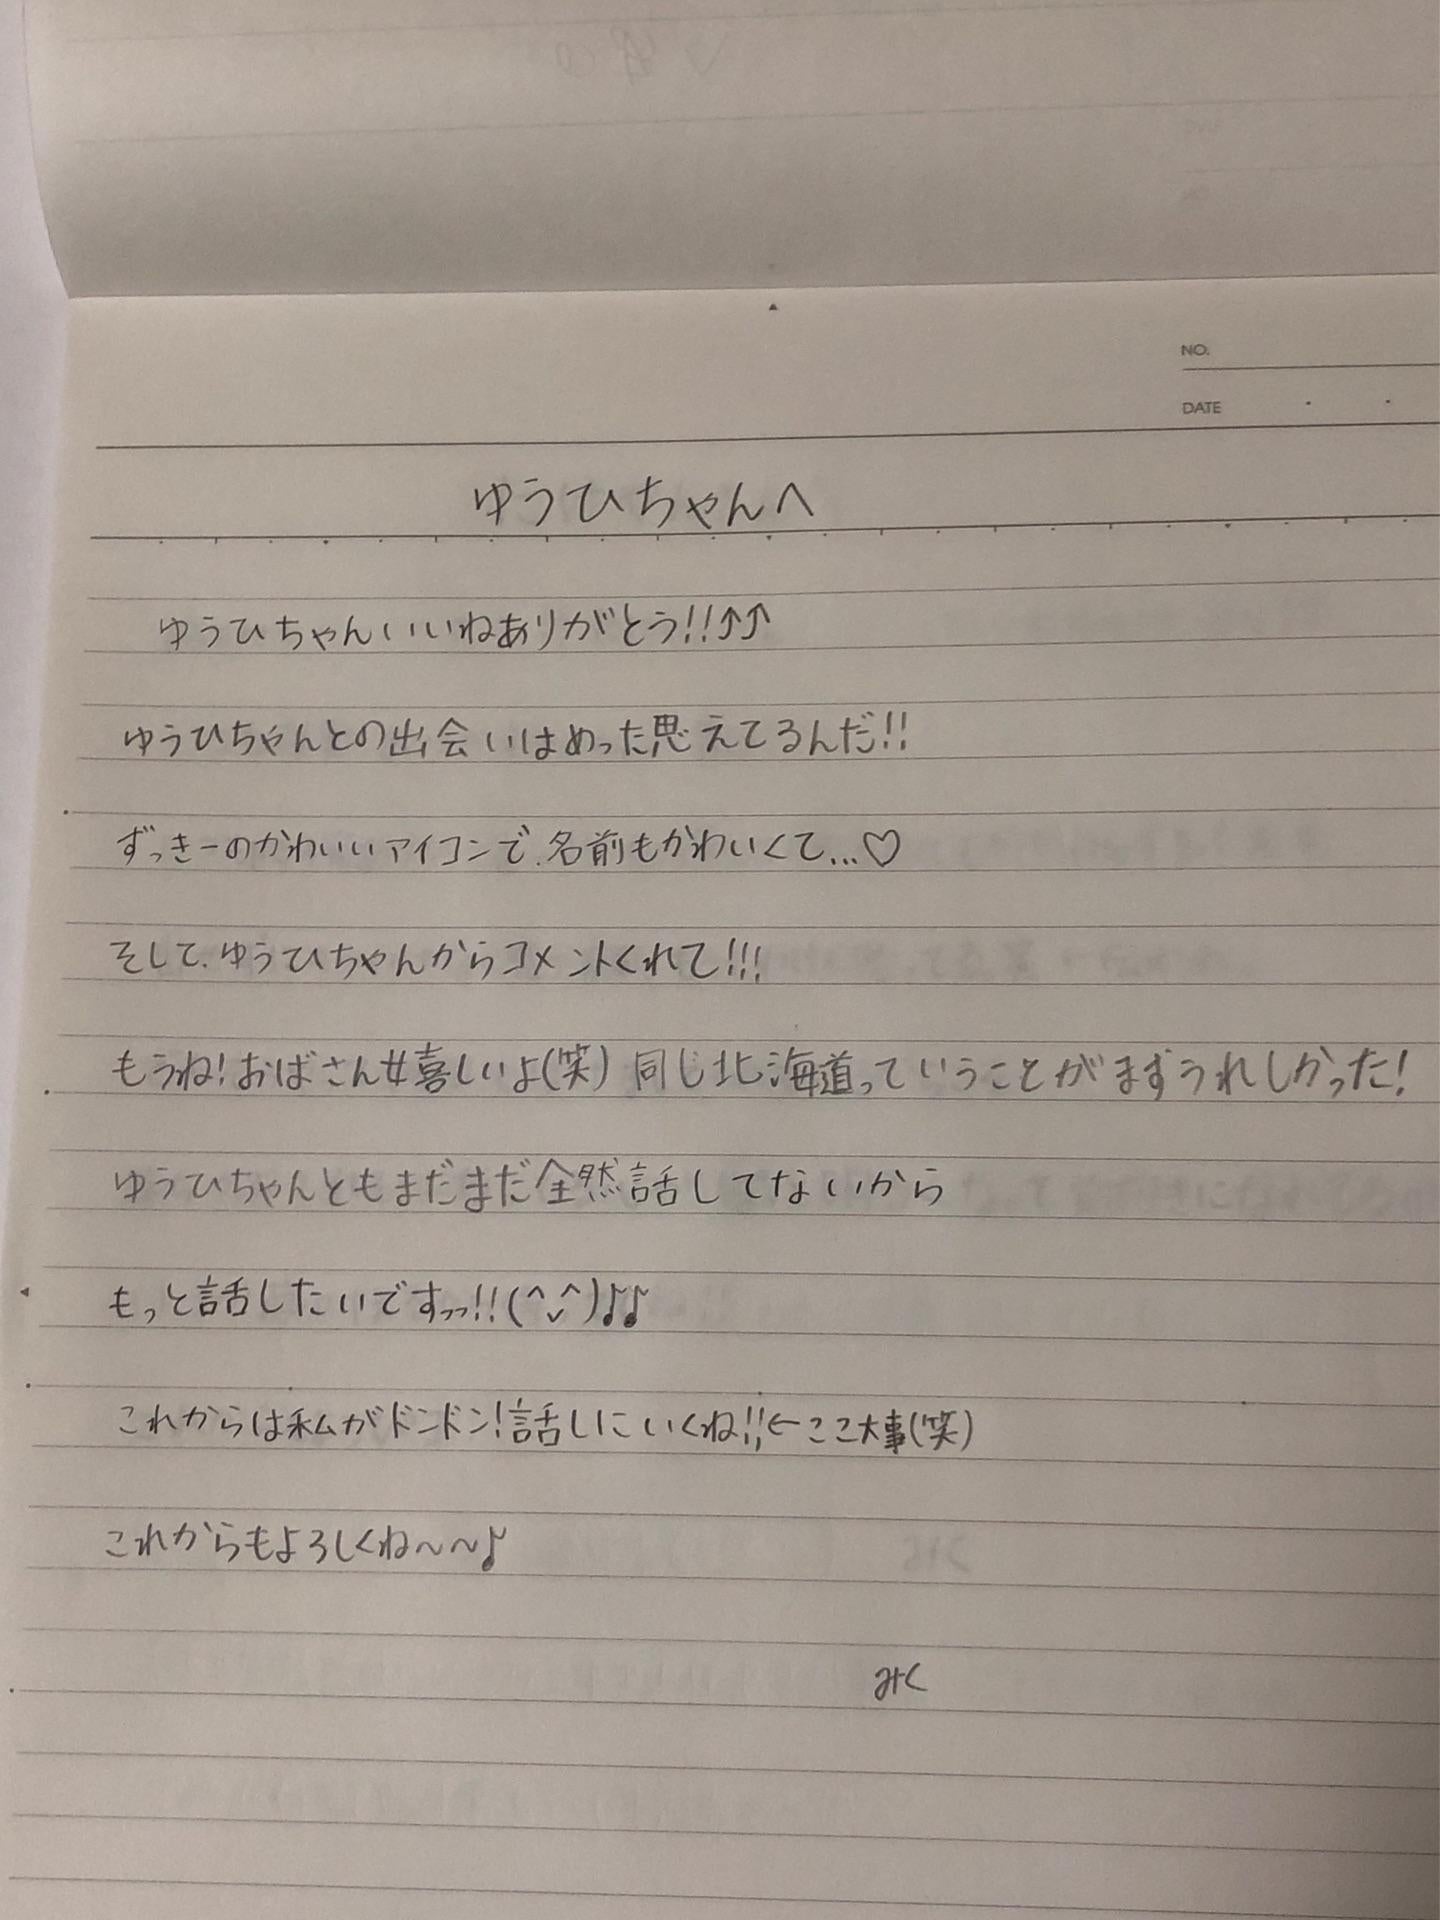 NO.
DATE
ゆうひちゃんへ
ゆうひちゃんいいねありがとう!!↑↑
ゆうひちゃんとの出会いはめった思えてるんだ!!
ずっきーのかわいいアイコンで、名前もかわいくて…♡
そして、ゆうひちゃんからコメントくれて!!!
もうね!おばさん嬉しいよ(笑) 同じ北海道っていうことがまずうれしかった!
ゆうひちゃんともまだまだ全然話してないから
もっと話したいですっっ!!(^⌄^)♪♪
これからは私がドンドン!話しにいくね!!←ココ大事(笑)
これからもよろしくね〜〜♪
みく